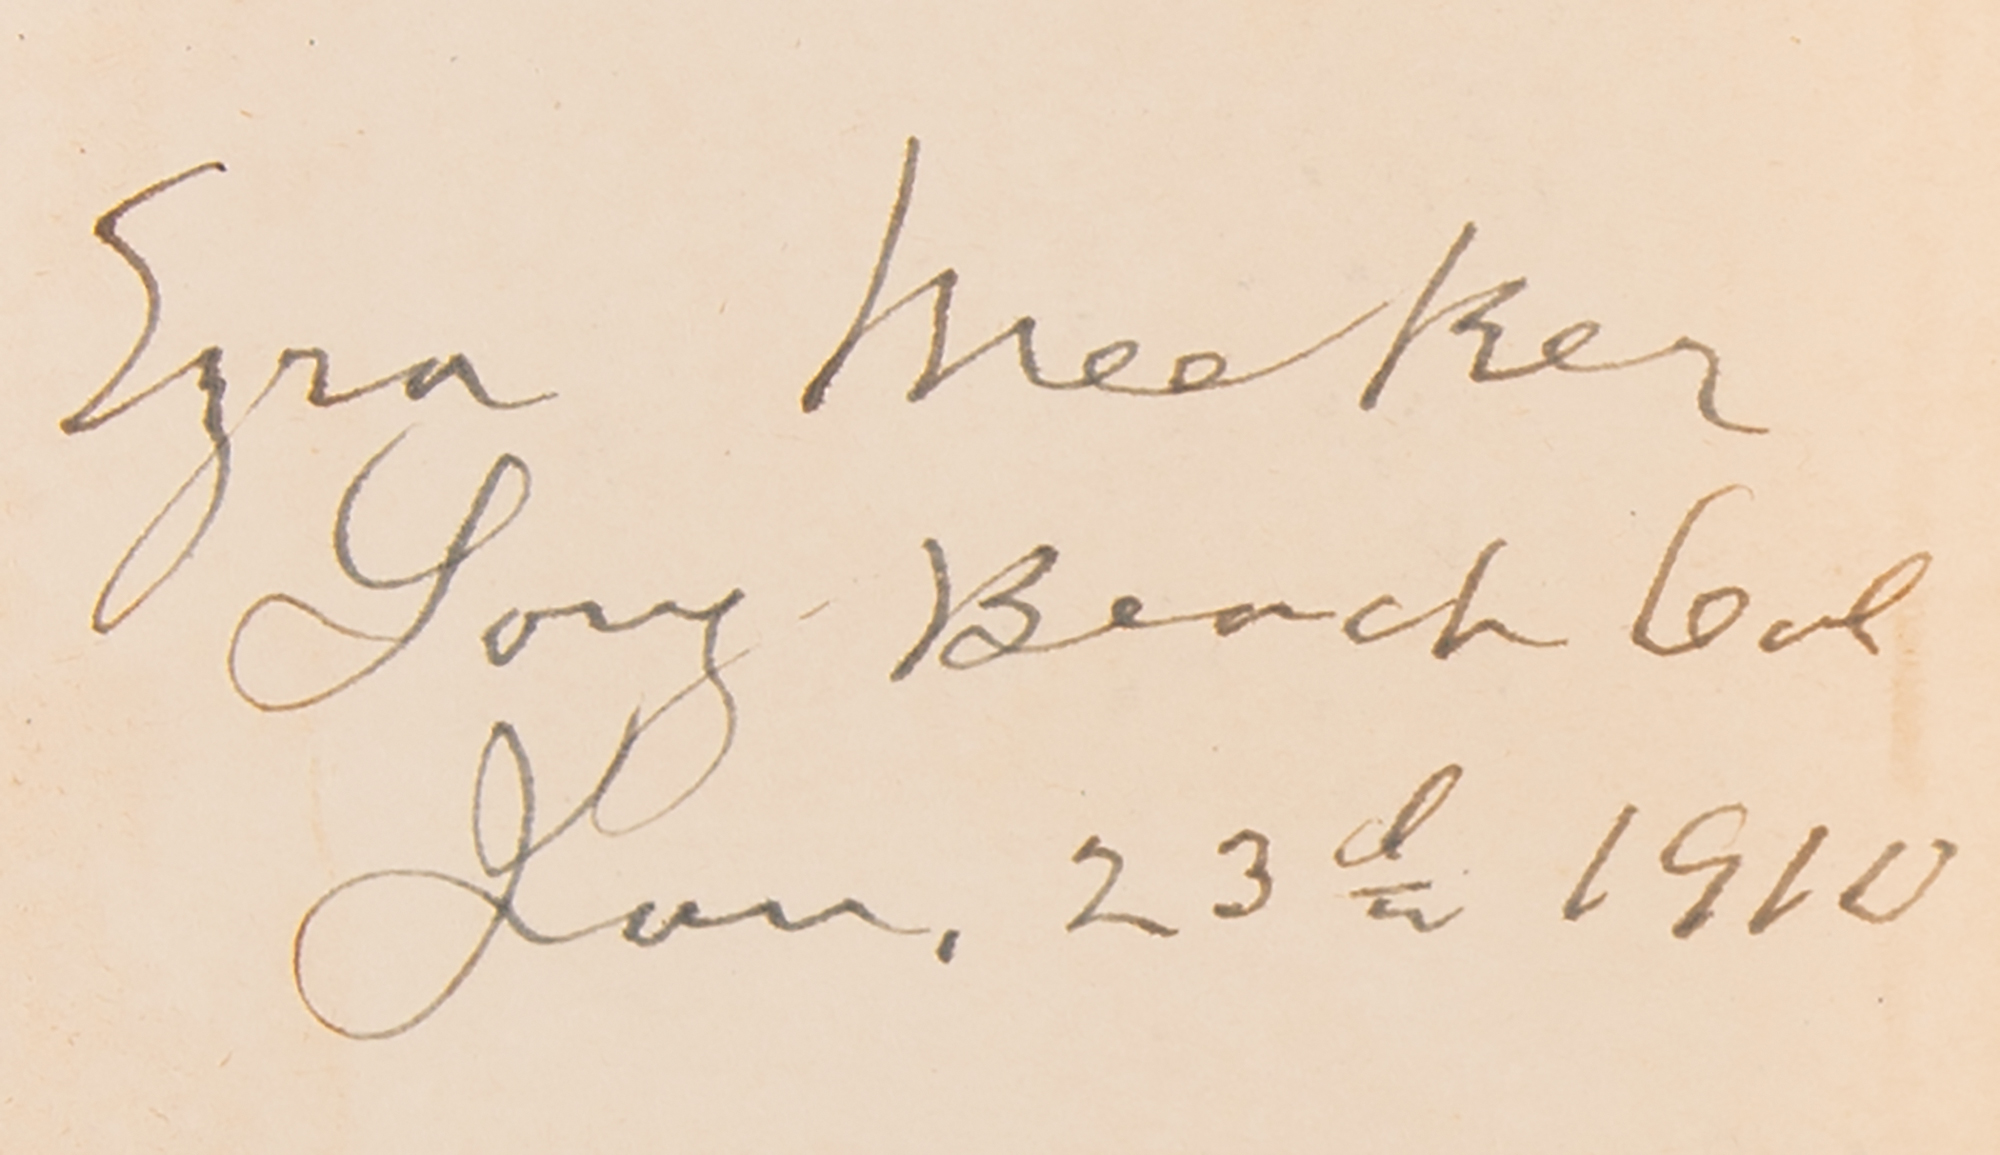 Ezra Meeker
Long Beach Cal
Jan, 23d 1910